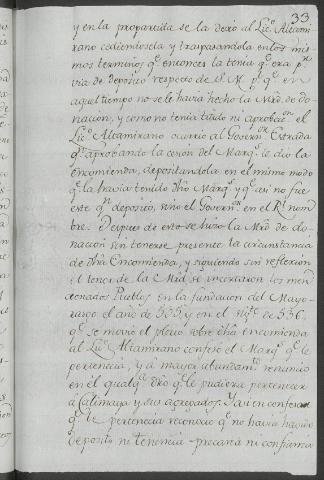 33
y en la propartida se la dexó al Lic.º Altami
rano cediendosela y traspasandola en los mis
mos terminos q.e entonces la tenia q.e era p.r
via de deposito respecto de S. M. p.r q.e en
aquel tiempo no se le havia hecho la Mrd. de do
nación, y como no tenia titulo ni aprobac.n el
Lic.º Altamirano ocurrio al Governor Estrada
q.n aprobando la cesión del Marq.s le dio la
encomienda, depositandola en el mismo modo
q.e la havia tenido dho Marq.s y q.e asi no fue
este q.n depositó, sino el Govern.r en el R.l nom
bre. Despues de esto se hizo la Mrd. de do
nación sin tenerse presente la circunstancia
de dha Encomienda, y siguiendo sin reflexion
el tenor de la Mrd. se incertaron los men
cionados Pueblos en la fundacion del Mayo
razgo el año de 535 y en el sig.te de 536
q.e se movió el pleito sobre dha encomienda
al Lic.º Altamirano confesó el Marq.s q.e le
pertenecia, y á mayor abundam.to renunció
en el qualq.r dro q.e le pudiera pertenecer
á Calimaya y sus agregados. Y asi en confesar
q.e le pertenecia reconoció q.e no havia havido
deposito ni tenencia precaria ni confianza